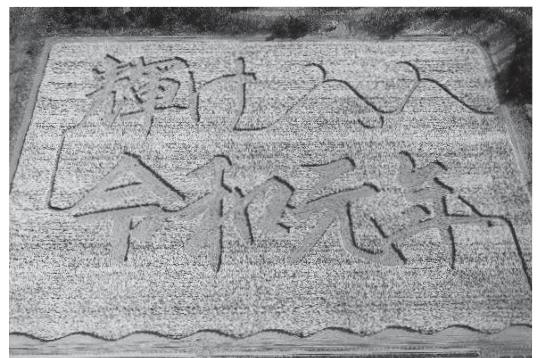 輝
令和元年